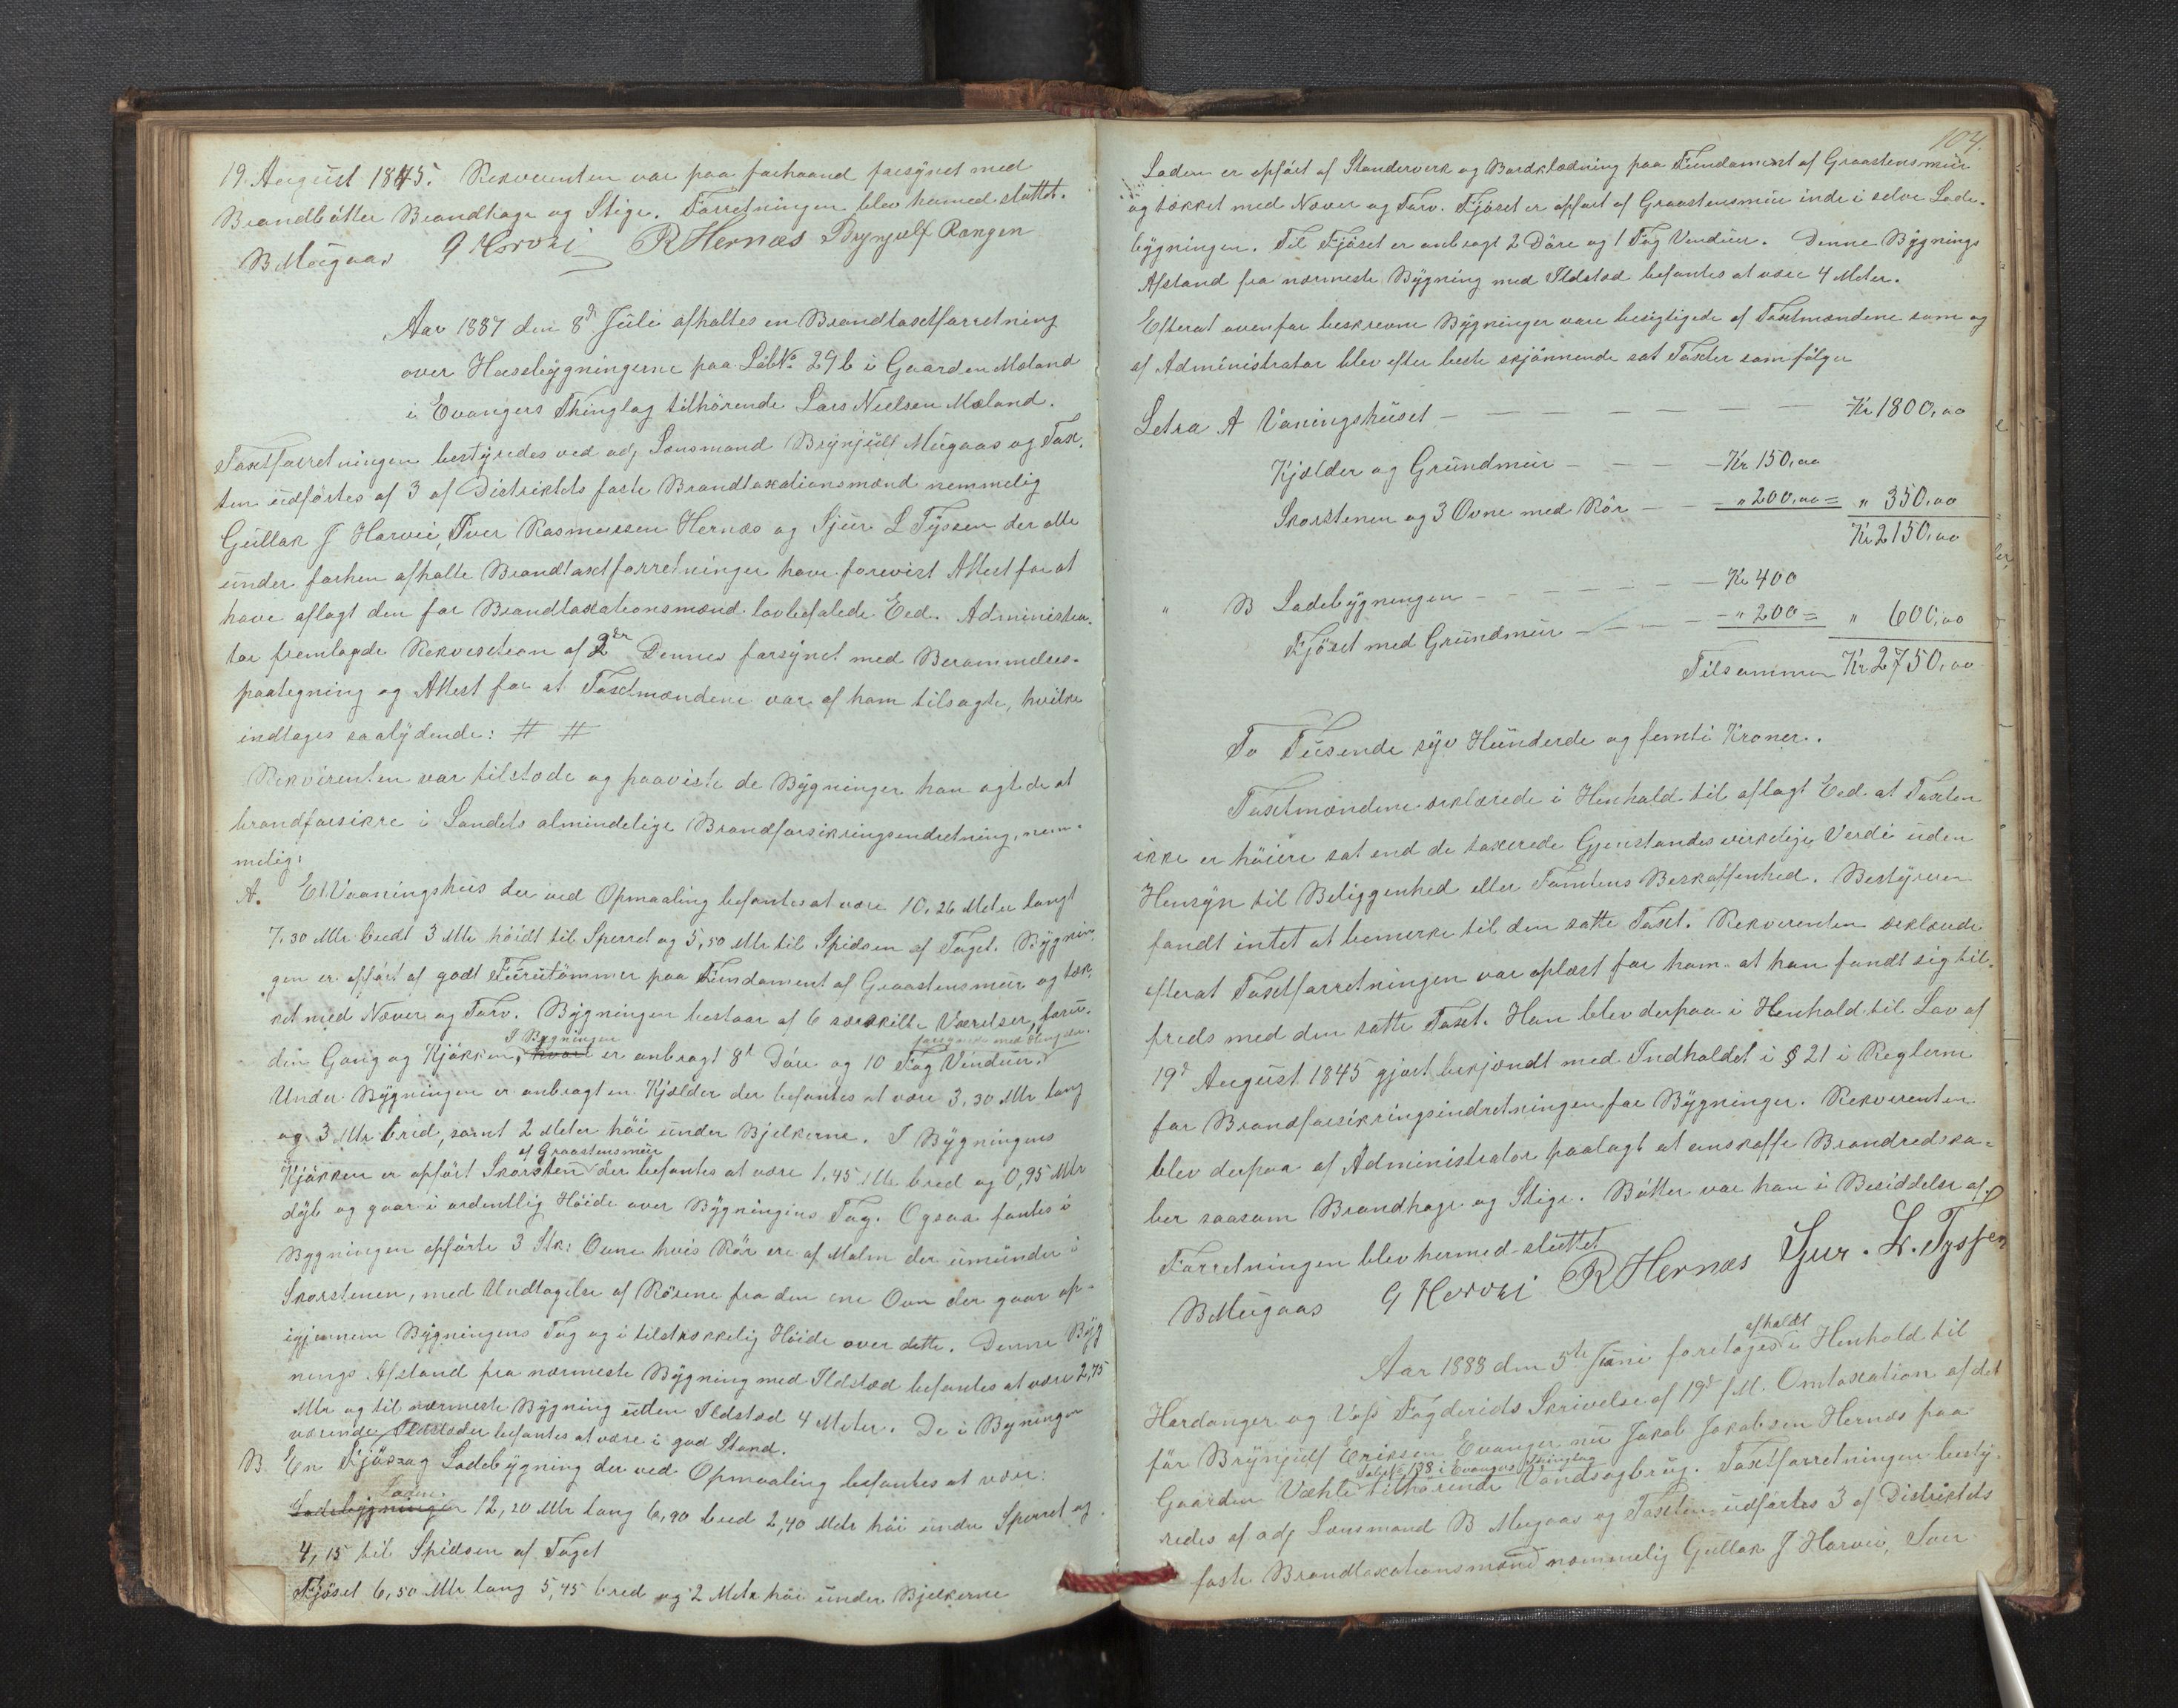 19. August 1845. Rekvirenten var paa forhaand forsynet med
Brandbötter Brandhage og Stige. Forretningen blev hermed sluttet.
B Mugaas G Horvei R Hernæs Brynjulf Rongen
Aar 1887 den 8de Juli afholtes en Brandtaxtforretning
over Husebygningerne paa LöbNo 29b i Gaarden Mæland
i Evangers Thinglag tilhörende Lars Nielsen Mæland.
Taxtforretningen bestyredes ved adj Lensmand Brynjulf Mugaas og Tax-
ten udförtes af 3 af Distriktets faste Brandtaxationsmænd nemmelig
Gullak J Horvei, Iver Rasmussen Hernæs og Sjur L Tyssen der alle
under forhen afholte Brandtaxtforretninger have forevist Attest for at
have aflagt den for Brandtaxationsmænd lovbefalede Eed. Administra-
tor fremlagde Rekvesition af 2den Dennes forsynet med Berammelses-
paategning og Attest for at Taxtmændene var af ham tilsagte, hvilke
indtages saalydende: # #
Rekvirenten var tilstede og paaviste de Bygninger han agtede at
brandforsikre i Landets almindelige Brandforsikringsindretning, nem-
melig:
A. Et Vaaningshus der ved Opmaaling befantes at være 10,26 Meter langt
7,30 Mtr bredt 3 Mtr höidt til Sperret og 5,50 Mtr til Spidsen af Taget. Bygnin-
gen er opfört af godt Furutömmer paa Fundament af Graastensmur og tæk-
ket med Næver og Torv. Bygningen bestaar af 6 særskilte Værelser, foru-
I Bygningen forsynede med Hengsler
den Gang og Kjökken, hvori er anbragt 8t Döre og 10 Fag Vinduer.
Under Bygningen er anbragt en Kjælder der befantes at være 3,30 Mtr lang
og 3 Mtr bred, samt 2 Meter höi under Bjelkerne. I Bygningens
af Graastensmur
Kjökken er opfört Skorsten der befantes at være 1,45 Mtr bred og 0,95 Mtr
dyb og gaar i ordentlig Höide over Bygningens Tag. Ogsaa fantes i
Bygningen opförte 3 Stk: Ovne hvis Rör ere af Malm der udmunder i
Skorstenen, med Undtagelse af Rörene fra den ene Ovn der gaar op-
igjennem Bygningens Tag og i tilstrækkelig Höide over dette. Denne Byg
nings Afstand fra nærmeste Bygning med Ildsted befantes at være 2,75
Mtr og til nærmeste Bygning uden Ildsted 4 Meter. De i Bygningen
værende Ildsteder befantes at være i god Stand.
B En Fjös og Ladebygning der ved Opmaaling befantes at være:
Laden
Ladebygningen 12,20 Mtr lang 6,90 bred 2,40 Mtr höi under Sperret og
4,15 til Spidsen af Taget
Fjöset 6,50 Mtr lang 5,45 bred og 2 Metr höi under Bjelkerne
104.
Laden er opfört af Standerverk og Bordklædning paa Fundament af Graastensmur
og tækket med Næver og Torv. Fjöset er opfört af Graastensmur inde i selve Lade-
bygningen. Til Fjöset er anbragt 2 Döre og 1 Fag Vinduer. Denne Bygnings
Afstand fra nærmeste Bygning med Ildsted befantes at være 4 Meter.
Efterat ovenfor beskrevne Bygninger vare besigtigede af Taxtmændene som og
af Administrator blev efter beste skjönnende sat Taxter som fölger
Letra A Vaningshuset - - - - - - - Kr 1800,00
Kjælder og Grundmur - - - - Kr 150,00
Skorstenen og 3 Ovne med Rör - - " 200,00 = " 350,00
Kr 2150,00
" B Ladebygningen - - - - - - Kr 400
Fjöset med Grundmur - - - - - " 200 = " 600,00
Tilsammen Kr 2750,00
To Tusende syv Hunderde og femti Kroner.
Taxtmændene erklærede i Henhold til aflagt Eed at Taxten
ikke er höiere sat end de taxerede Gjenstandes virkelige Verdi uden
Hensyn til Beliggenhed eller Tomtens Beskaffenhed. Bestyreren
fandt intet at bemerke til den satte Taxt. Rekvirenten erklærede
efterat Taxtforretningen var oplæst for ham at han fandt sig til-
freds med den satte Taxt. Han blev derpaa i Henhold til Lov af
19d August 1845 gjort bekjendt med Indholdet i § 21 i Reglerne
for Brandforsikringsindretningen for Bygninger. Rekvirenten
blev derpaa af Administrator paalagt at anskaffe Brandredska-
ber saasom Brandhage og Stige. Bötter var han i Besiddelse af.
Forretningen blev hermed sluttet
B Mugaas G Horvei R Hernæs Sjur. L. Tyssen
afholdt
Aar 1888 den 5te Juni foretages i Henhold til
Hardanger og Voss Fogderids Skrivelse af 19d f.M. Omtaxation af det
för Brynjulf Eriksen Evanger nu Jakob Jakobsen Hernæs paa
LöbNo 138 i Evangers Thinglag
Gaarden Væhle tilhörende Vandsagbrug. Taxtforretningen besty-
redes af adj Lensmand B Mugaas og Taxten udförtes 3 af Distriktets
faste Brandtaxationsmænd nemmelig Gullak J Horvei, Iver